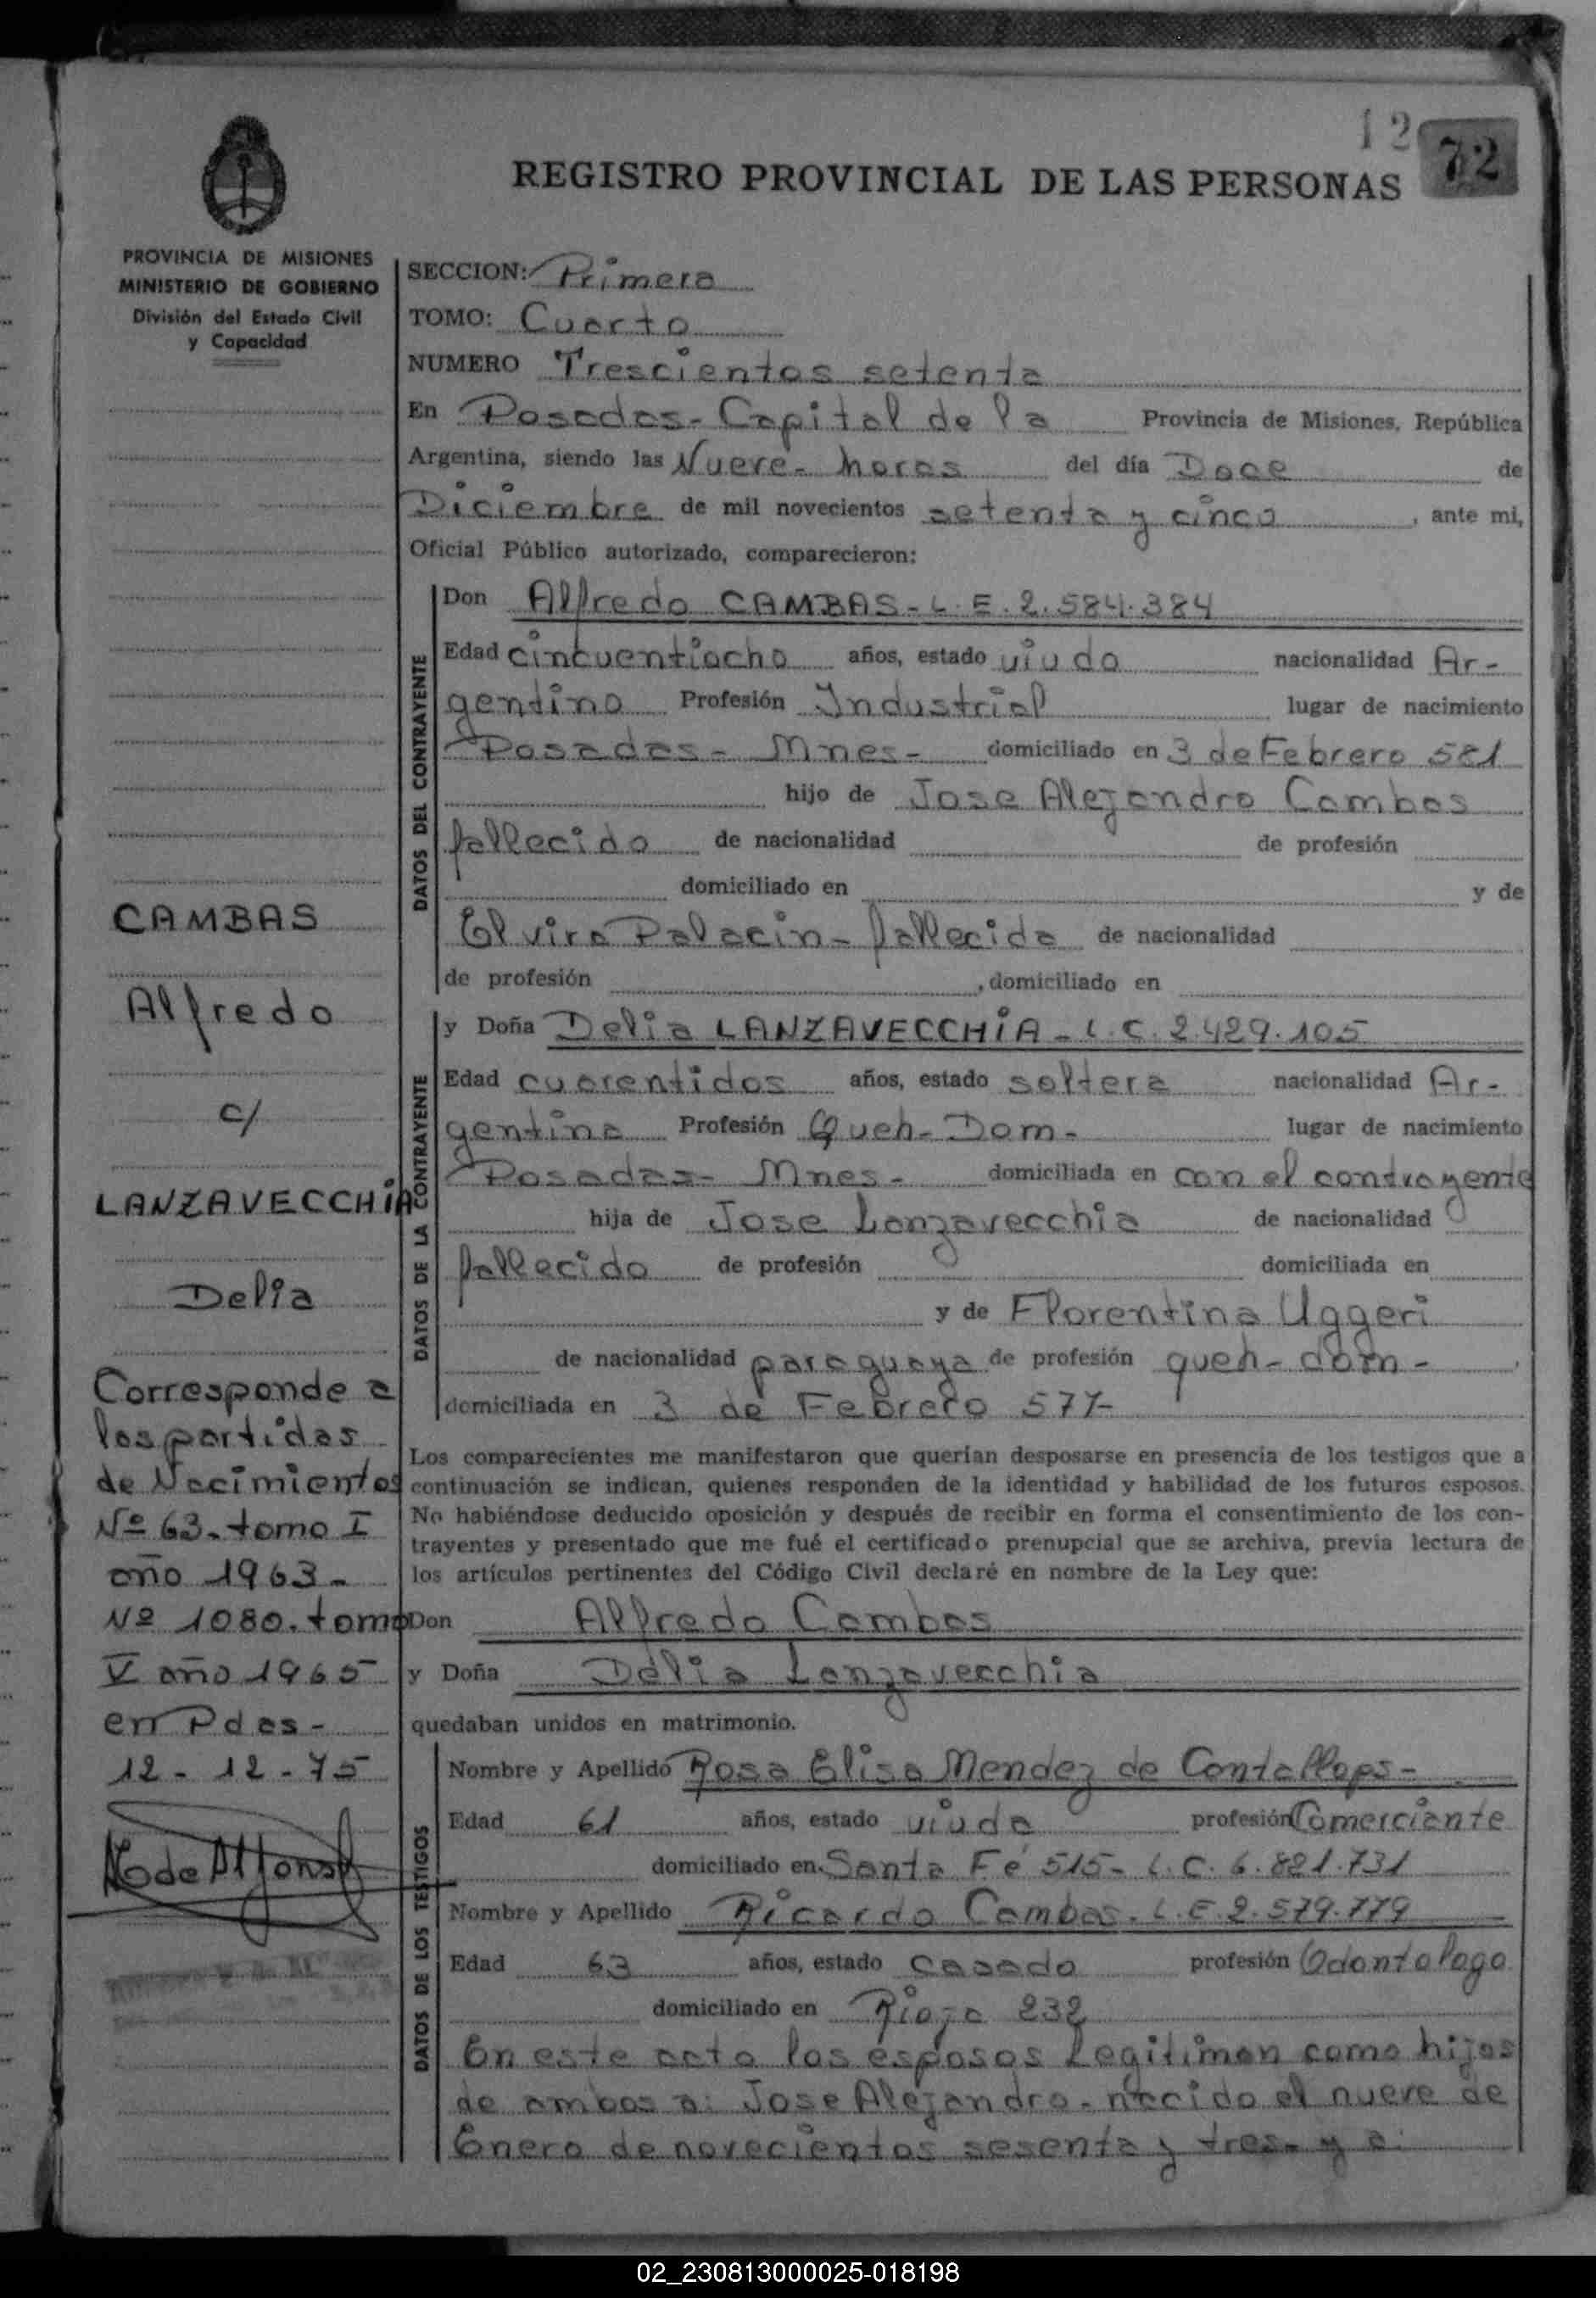 12
72
REGISTRO PROVINCIAL DE LAS PERSONAS
PROVINCIA DE MISIONES
MINISTERIO DE GOBIERNO
División del Estado Civil
y Capacidad
SECCION: Primera
TOMO: Cuarto
NUMERO Trescientos setenta
En Posadas - Capital de la Provincia de Misiones, República
Argentina, siendo las Nueve - horas del día Doce de
Diciembre de mil novecientos setenta y cinco, ante mi,
Oficial Público autorizado, comparecieron:
DATOS DEL CONTRAYENTE
Don Alfredo CAMBAS - L.E. 2.584.384
Edad cincuentiocho años, estado viudo nacionalidad Ar-
gentino Profesión Industrial lugar de nacimiento
Posadas - Mnes - domiciliado en 3 de Febrero 581
hijo de Jose Alejandro Cambas
fallecido de nacionalidad de profesión
domiciliado en y de
Elvira Palacin - fallecida de nacionalidad
de profesión , domiciliado en
DATOS DE LA CONTRAYENTE
y Doña Delia LANZAVECCHIA - L.C. 2.429.105
Edad cuarentidos años, estado soltera nacionalidad Ar-
gentina Profesión Queh - Dom - lugar de nacimiento
Posadas - Mnes - domiciliada en con el contrayente
hija de Jose Lanzavecchia de nacionalidad
fallecido de profesión domiciliada en
y de Florentina Uggeri
de nacionalidad paraguaya de profesión queh - dom - ,
domiciliada en 3 de Febrero 577-
Los comparecientes me manifestaron que querían desposarse en presencia de los testigos que a
continuación se indican, quienes responden de la identidad y habilidad de los futuros esposos.
No habiéndose deducido oposición y después de recibir en forma el consentimiento de los con-
trayentes y presentado que me fué el certificado prenupcial que se archiva, previa lectura de
los artículos pertinentes del Código Civil declaré en nombre de la Ley que:
Don Alfredo Cambas
y Doña Delia Lanzavecchia
quedaban unidos en matrimonio.
DATOS DE LOS TESTIGOS
Nombre y Apellido Rosa Elisa Mendez de
Edad 61 años, estado viuda profesión Comerciante
domiciliado en Santa Fé 515 - L.C. 6.821.731
Nombre y Apellido Ricardo Cambas - L.E. 2.579.779
Edad 63 años, estado casado profesión Odontologo
domiciliado en Rioja 232
En este acto los esposos Legitiman como hijos
de ambos a: Jose Alejandro - nacido el nueve de
Enero de novecientos sesenta y tres - y a:
CAMBAS
Alfredo
c/
LANZAVECCHIA
Delia
Corresponde a
las partidas
de Nacimientos
Nº 63 - tomo I
año 1963 -
Nº 1080. tomo
V año 1965
en Pdas -
12 - 12 - 75
02_230813000025-018198